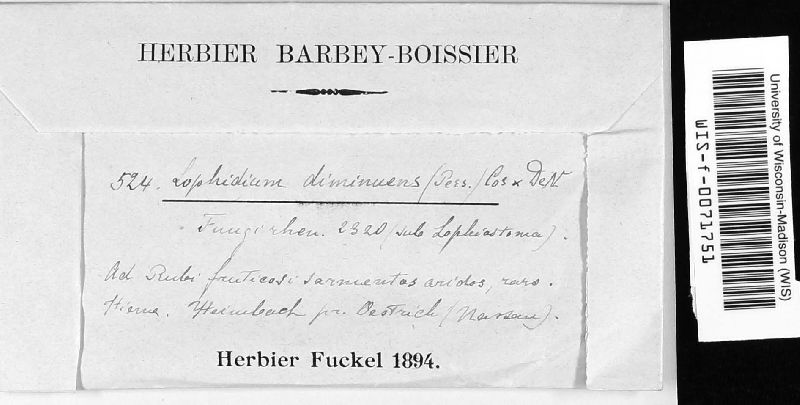 HERBIER BARBEY-BOISSIER
524. Lophidium diminuens (Pers.) Ces & DeN
Fungi rhen. 2320 (sub Lophiostoma).
Ad Rubi fruticosi sarmentos aridos, raro.
Hieme. Heimbach pr. Oestrich (Nassau).
Herbier Fuckel 1894.
University of Wisconsin-Madison (WIS)
WIS-f-0071751